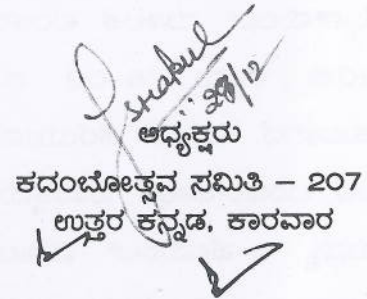 28/12
ಅಧ್ಯಕ್ಷರು
ಕದಂಬೋತ್ಸವ ಸಮಿತಿ – 207
ಉತ್ತರ ಕನ್ನಡ, ಕಾರವಾರ